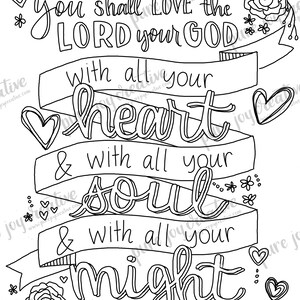 you shall LOVE the
LORD your GOD
with all your
heart
& with all your
soul
& with all your
might